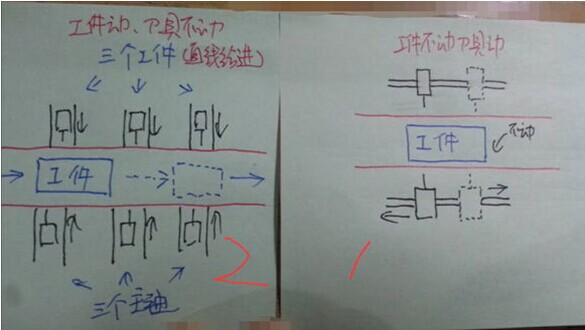 工件动、刀具不动
三个工件(直线给进)
工件
三个主轴
2
工件不动刀具动
工件
不动
1